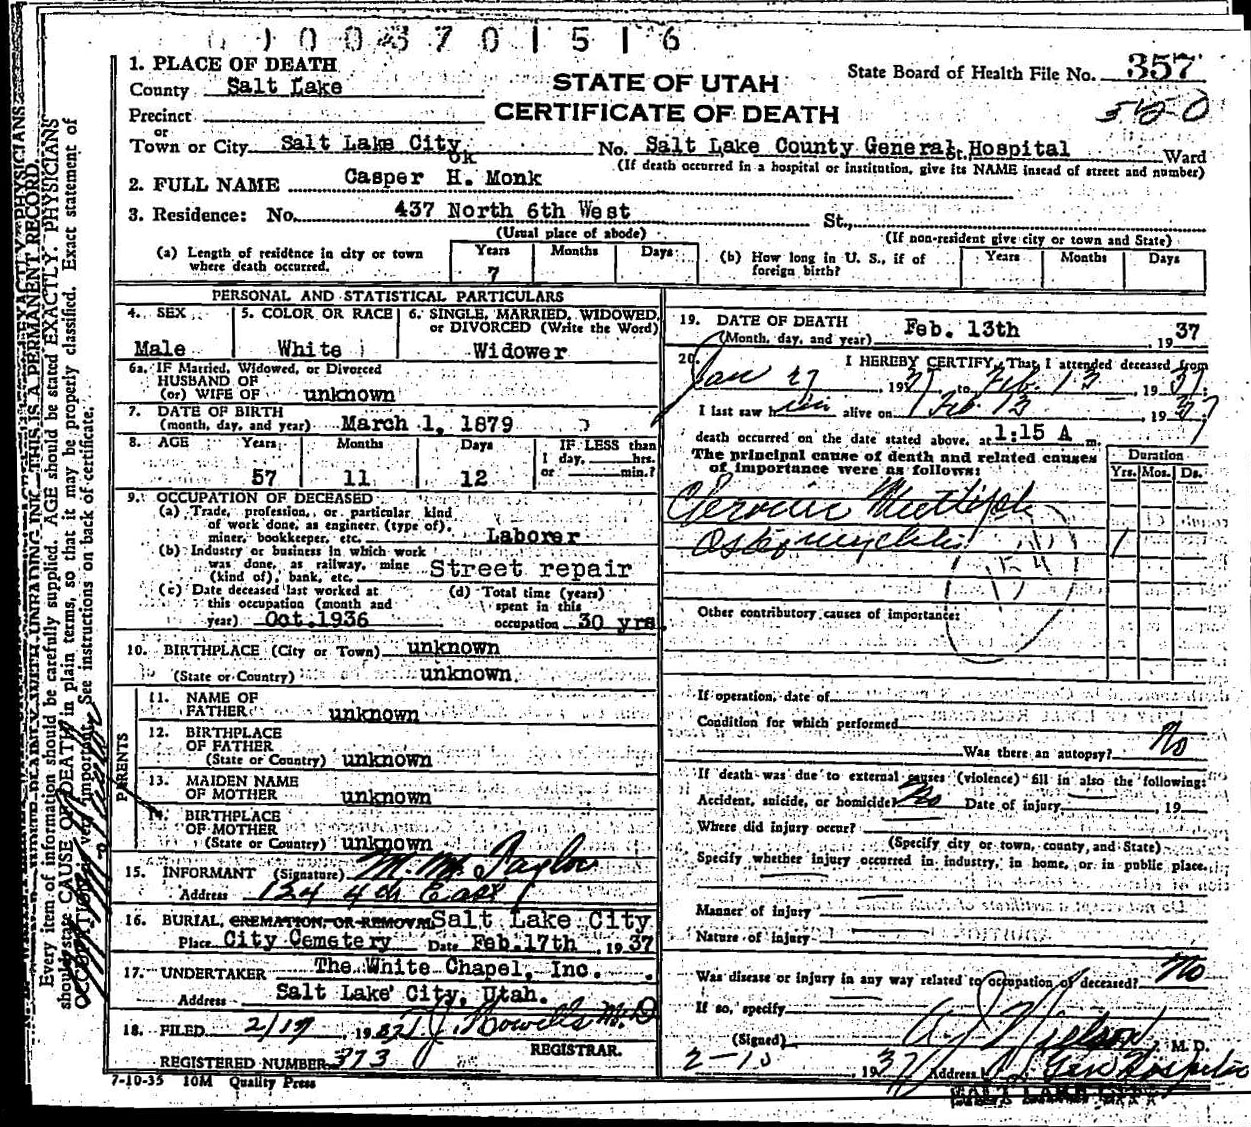 0003701516
1. PLACE OF DEATH
County Salt Lake
STATE OF UTAH
CERTIFICATE OF DEATH
State Board of Health File No. 357
Precinct
or
Town or City Salt Lake City
No. Salt Lake County General Hospital St. Ward
(If death occurred in a hospital or institution, give its NAME instead of street and number)
ok
2. FULL NAME Casper H. Monk
3. Residence: No. 437 North 6th West St.,
(Usual place of abode)
(If non-resident give city or town and State)
(a) Length of residence in city or town where death occurred.
Years 7 Months Days
(b) How long in U. S., if of foreign birth?
Years Months Days
PERSONAL AND STATISTICAL PARTICULARS
4. SEX Male
5. COLOR OR RACE White
6. SINGLE, MARRIED, WIDOWED, or DIVORCED (Write the Word) Widower
6a. IF Married, Widowed, or Divorced
HUSBAND OF
(or) WIFE OF unknown
7. DATE OF BIRTH
(month, day, and year) March 1, 1879
8. AGE Years Months Days
57 11 12
IF LESS than
1 day, hrs.
or min.?
9. OCCUPATION OF DECEASED
(a) Trade, profession, or particular kind
of work done, as engineer, (type of),
miner, bookkeeper, etc. Laborer
(b) Industry or business in which work
was done, as railway, mine
(kind of), bank, etc. Street repair
(c) Date deceased last worked at
this occupation (month and
year) Oct. 1936
(d) Total time (years)
spent in this
occupation 30 yrs.
10. BIRTHPLACE (City or Town) unknown
(State or Country) unknown
PARENTS
11. NAME OF
FATHER unknown
12. BIRTHPLACE
OF FATHER
(State or Country) unknown
13. MAIDEN NAME
OF MOTHER unknown
14. BIRTHPLACE
OF MOTHER
(State or Country) unknown
15. INFORMANT (Signature)
Address 124 4th East
16. BURIAL, CREMATION, OR REMOVAL Salt Lake City
Place City Cemetery Date Feb. 17th, 1937
17. UNDERTAKER The White Chapel, Inc.
Address Salt Lake City, Utah.
18. FILED 2/17, 19 M.D
REGISTRAR.
REGISTERED NUMBER 373
7-10-35 10M Quality Press
19. DATE OF DEATH
(Month, day, and year) Feb. 13th, 1937
20. I HEREBY CERTIFY, That I attended deceased from
Jan 27, 1937 to Feb. 13, 1937.
I last saw him alive on Feb 13, 1937
death occurred on the date stated above, at 1:15 A m.
The principal cause of death and related causes
of importance were as follows:
Duration
Yrs. Mos. Ds.
Multiple
1
Other contributory causes of importance:
If operation, date of
Condition for which performed
Was there an autopsy? No
If death was due to external causes (violence) fill in also the following:
Accident, suicide, or homicide? No Date of injury, 19
Where did injury occur?
(Specify city or town, county, and State)
Specify whether injury occurred in industry, in home, or in public place.
Manner of injury
Nature of injury
Was disease or injury in any way related to occupation of deceased? No
If so, specify
(Signed) M. D.
1937 Address Gen Hospital
SALT LAKE CITY
Every item of information should be carefully supplied. AGE should be stated EXACTLY. PHYSICIANS
should state CAUSE OF DEATH in plain terms, so that it may be properly classified. Exact statement of
OCCUPATION is very important. See instructions on back of certificate.